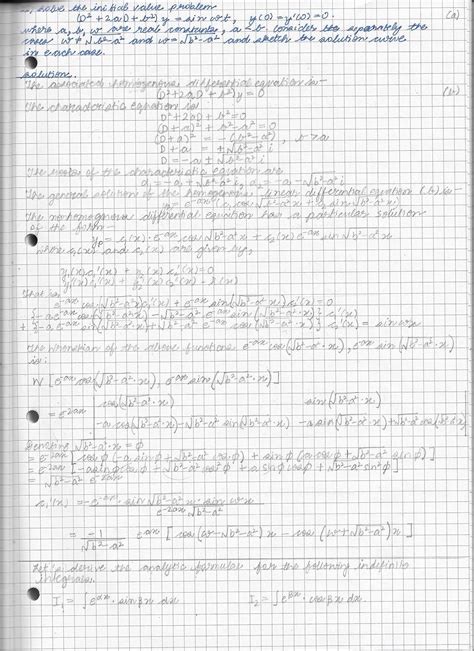 solve the initial value problem
(D² + 2aD + b²) y = sin wt, y(0) = y'(0) = 0. (a)
where a, b, w are real constants, a < b. Consider the separately the
cases w ≠ √b²-a² and w = √b²-a² and sketch the solution curve
in each case.
Solution.
The associated homogeneous differential equation is-
(D² + 2aD + b²)y = 0 (b)
The characteristic equation is
D² + 2aD + b² = 0
(D + a)² + b² - a² = 0
(D + a)² = -(b² - a²), b > a
D + a = ±√b²-a² i
D = -a ± √b²-a² i
The roots of the characteristic equation are
d₁ = -a + √b²-a² i, d₂ = -a - √b²-a² i
The general solution of the homogeneous linear differential equation (b) is-
The nonhomogeneous differential equation has a particular solution
of the form-
yp = c₁(x) · e^-ax cos √b²-a² x + c₂(x) e^-ax sin √b²-a² x
where c₁(x) and c₂(x) are given by,
y₁(x) c₁'(x) + y₂(x) c₂'(x) = 0
y₁'(x) c₁'(x) + y₂'(x) c₂'(x) = r(x)
That is,
e^-ax cos(√b²-a² x) c₁'(x) + e^-ax sin(√b²-a² x) c₂'(x) = 0
{-a e^-ax cos(√b²-a² x) - √b²-a² e^-ax sin(√b²-a² x)} c₁'(x)
+ {-a e^-ax sin(√b²-a² x) + √b²-a² e^-ax cos(√b²-a² x)} c₂'(x) = sin wx
The Wronskian of the above functions e^-ax cos(√b²-a² x), e^-ax sin(√b²-a² x)
is:
W[e^-ax cos(√b²-a² x), e^-ax sin(√b²-a² x)]
= e^-2ax | cos(√b²-a² x) sin(√b²-a² x) |
-a cos(√b²-a² x) - √b²-a² sin(√b²-a² x) -a sin(√b²-a² x) + √b²-a² cos(√b²-a² x)
Denoting √b²-a² x = φ
= e^-2ax [cos φ (-a sin φ + √b²-a² cos φ) + sin φ (a cos φ + √b²-a² sin φ)]
= e^-2ax [-a sin φ cos φ + √b²-a² cos² φ + a sin φ cos φ + √b²-a² sin² φ]
= √b²-a² e^-2ax
c₁'(x) = -e^-ax · sin √b²-a² x · sin wx
e^-2ax √b²-a²
= -1/√b²-a² e^ax [cos(w-√b²-a²)x - cos(w+√b²-a²)x]
Let's derive the analytic formulas for the following indefinite
integrals.
I₁ = ∫e^αx · sin βx dx I₂ = ∫e^βx · cos βx dx